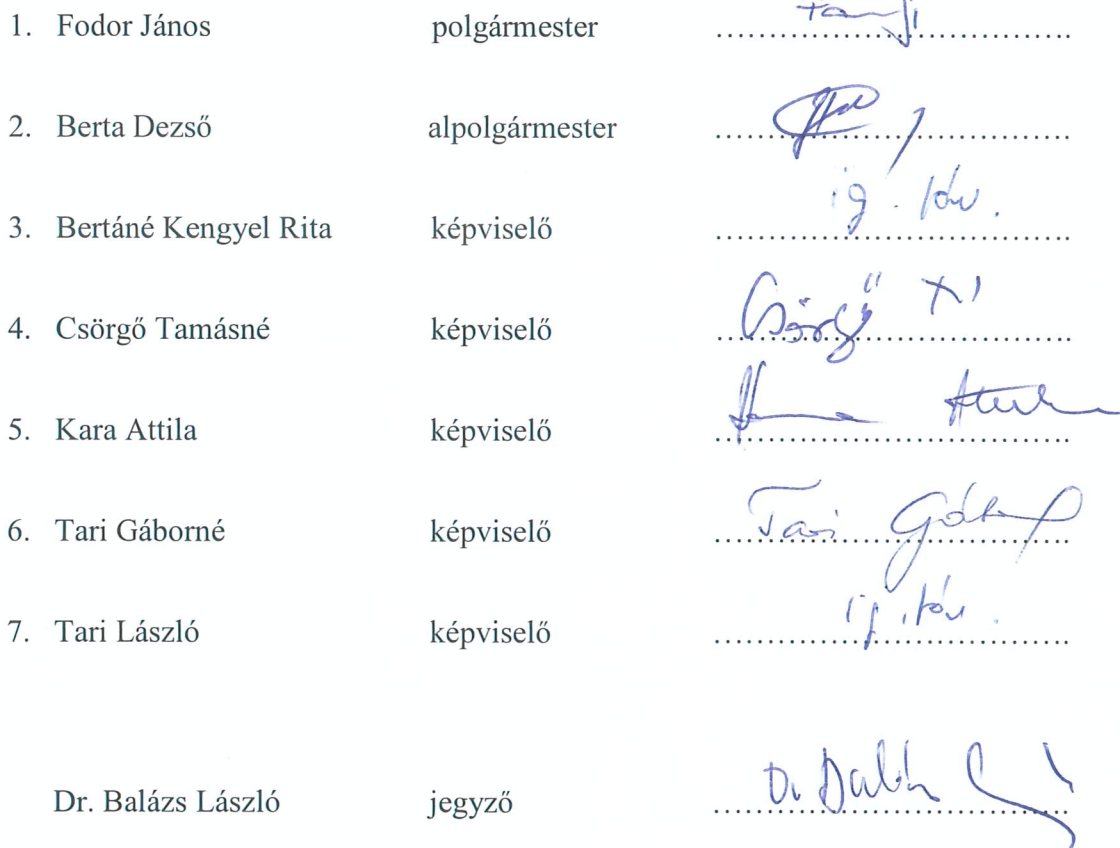 1. Fodor János polgármester ....................
2. Berta Dezső alpolgármester ....................
3. Bertáné Kengyel Rita képviselő ig. táv.
4. Csörgő Tamásné képviselő Csörgő
5. Kara Attila képviselő Attila
6. Tari Gáborné képviselő Tari Gáborné
7. Tari László képviselő ig. táv.
Dr. Balázs László jegyző Dr Balázs